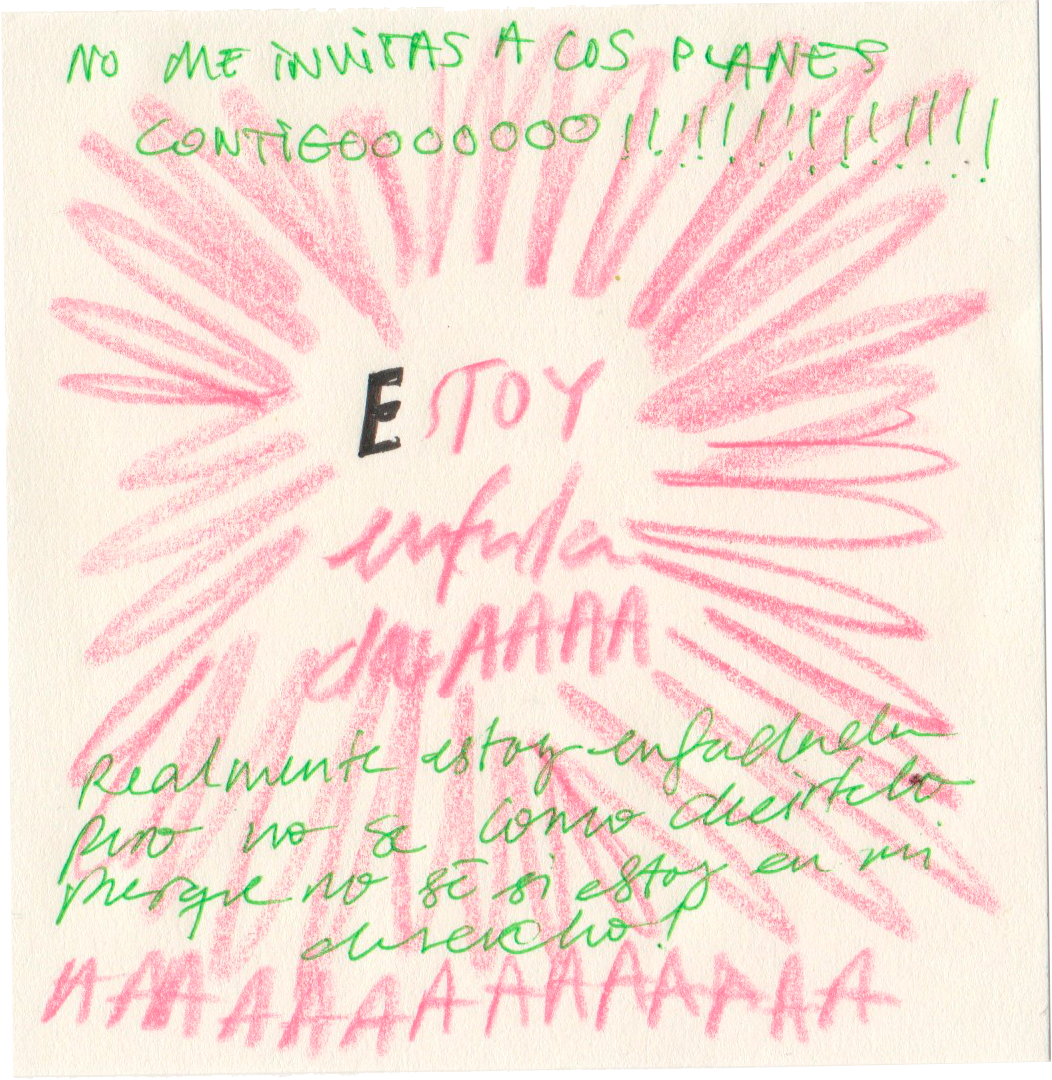 NO ME iNViTAS A LOS PLANES
CONTiGOOOOOOO!!!!!!!!!!!!!
ESTOY
enfada
daAAAA
Realmente estoy enfadada
pero no se como decirtelo
porque no sé si estoy en mi
derecho!
AAAAAAAAAAAAAA